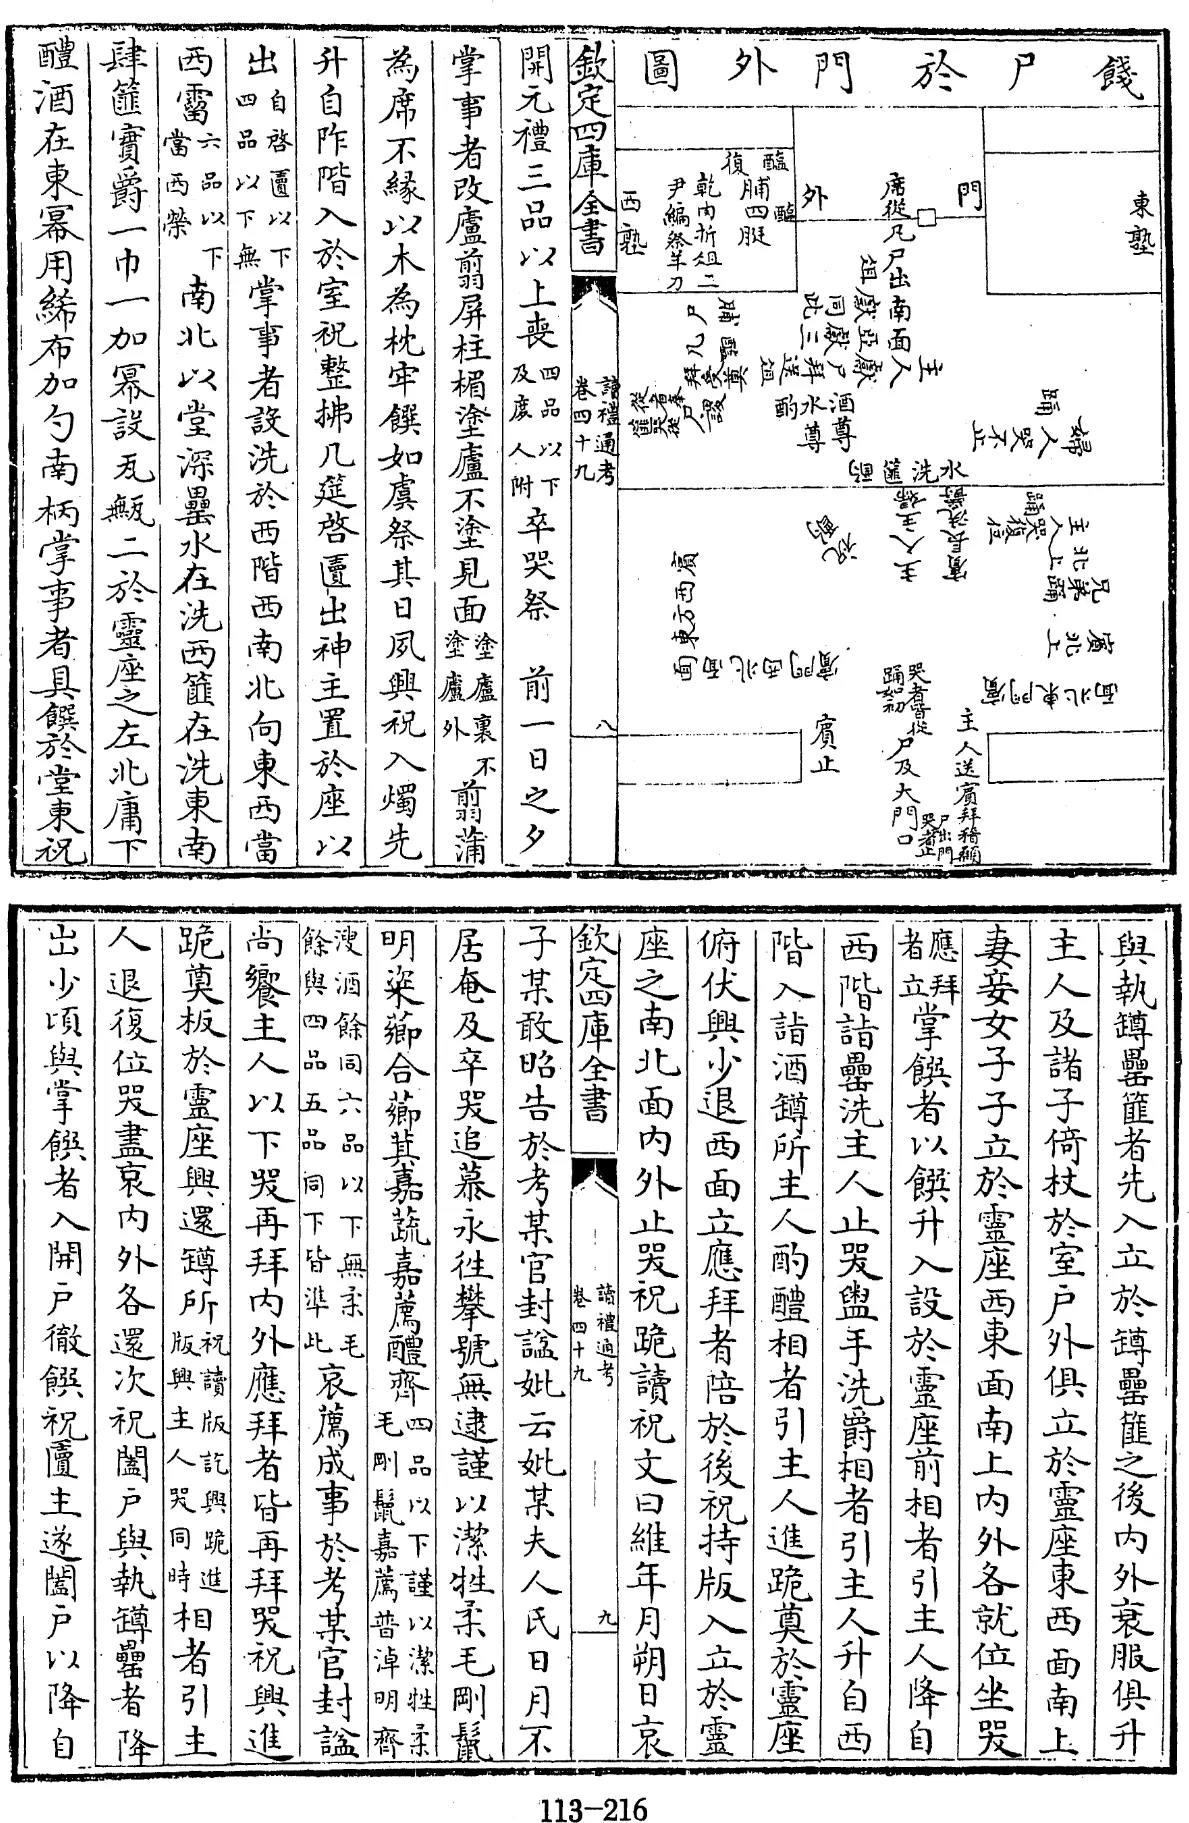 餞尸於門外圖
東塾
門
外
西塾
席從几尸出南面
俎
醢
醢
脯四脡
乾肉折俎二
尹縮祭半刀
主人
婦人哭不止
踊
酒尊
水尊
酌
水洗篚
主人哭復位
踊
兄弟北上踊
賓北上
賓西方東面
賓止
哭者皆從
踊如初
尸及大門口
主人送賓拜稽顙
尸出門
哭者止
欽定四庫全書
讀禮通考
卷四十九
八
開元禮三品以上喪四品以下
及庶人附卒哭祭　前一日之夕
掌事者改廬翦屏柱楣塗廬不塗見面塗廬裏不
塗廬外翦蒲
為席不緣以木為枕牢饌如虞祭其日夙興祝入燭先
升自阼階入於室祝整拂几筵啓匵出神主置於座以
出自啓匵以下
四品以下無掌事者設洗於西階西南北向東西當
西霤六品以下
當西榮南北以堂深罍水在洗西篚在洗東南
肆篚實爵一巾一加冪設瓦甒二於靈座之左北庸下
醴酒在東冪用綌布加勺南柄掌事者具饌於堂東祝
與執罇罍篚者先入立於罇罍篚之後内外衰服俱升
主人及諸子倚杖於室户外俱立於靈座東西面南上
妻妾女子子立於靈座西東面南上内外各就位坐哭
應拜
者立掌饌者以饌升入設於靈座前相者引主人降自
西階詣罍洗主人止哭盥手洗爵相者引主人升自西
階入詣酒罇所主人酌醴相者引主人進跪奠於靈座
俯伏興少退西面立應拜者陪於後祝持版入立於靈
座之南北面内外止哭祝跪讀祝文曰維年月朔日哀
欽定四庫全書
讀禮通考
卷四十九
九
子某敢昭告於考某官封諡妣云妣某夫人氏日月不
居奄及卒哭追慕永往攀號無逮謹以潔牲柔毛剛鬛
明粢薌合薌萁嘉蔬嘉薦醴齊四品以下謹以潔牲柔
毛剛鬛嘉薦普淖明齊
溲酒餘同六品以下無柔毛
餘與四品五品同下皆準此哀薦成事於考某官封諡
尚饗主人以下哭再拜内外應拜者皆再拜哭祝興進
跪奠板於靈座興還罇所祝讀版訖興跪進
版興主人哭同時相者引主
人退復位哭盡哀内外各還次祝闔户與執罇罍者降
出少頃與掌饌者入開户徹饌祝匵主遂闔户以降自
113-216